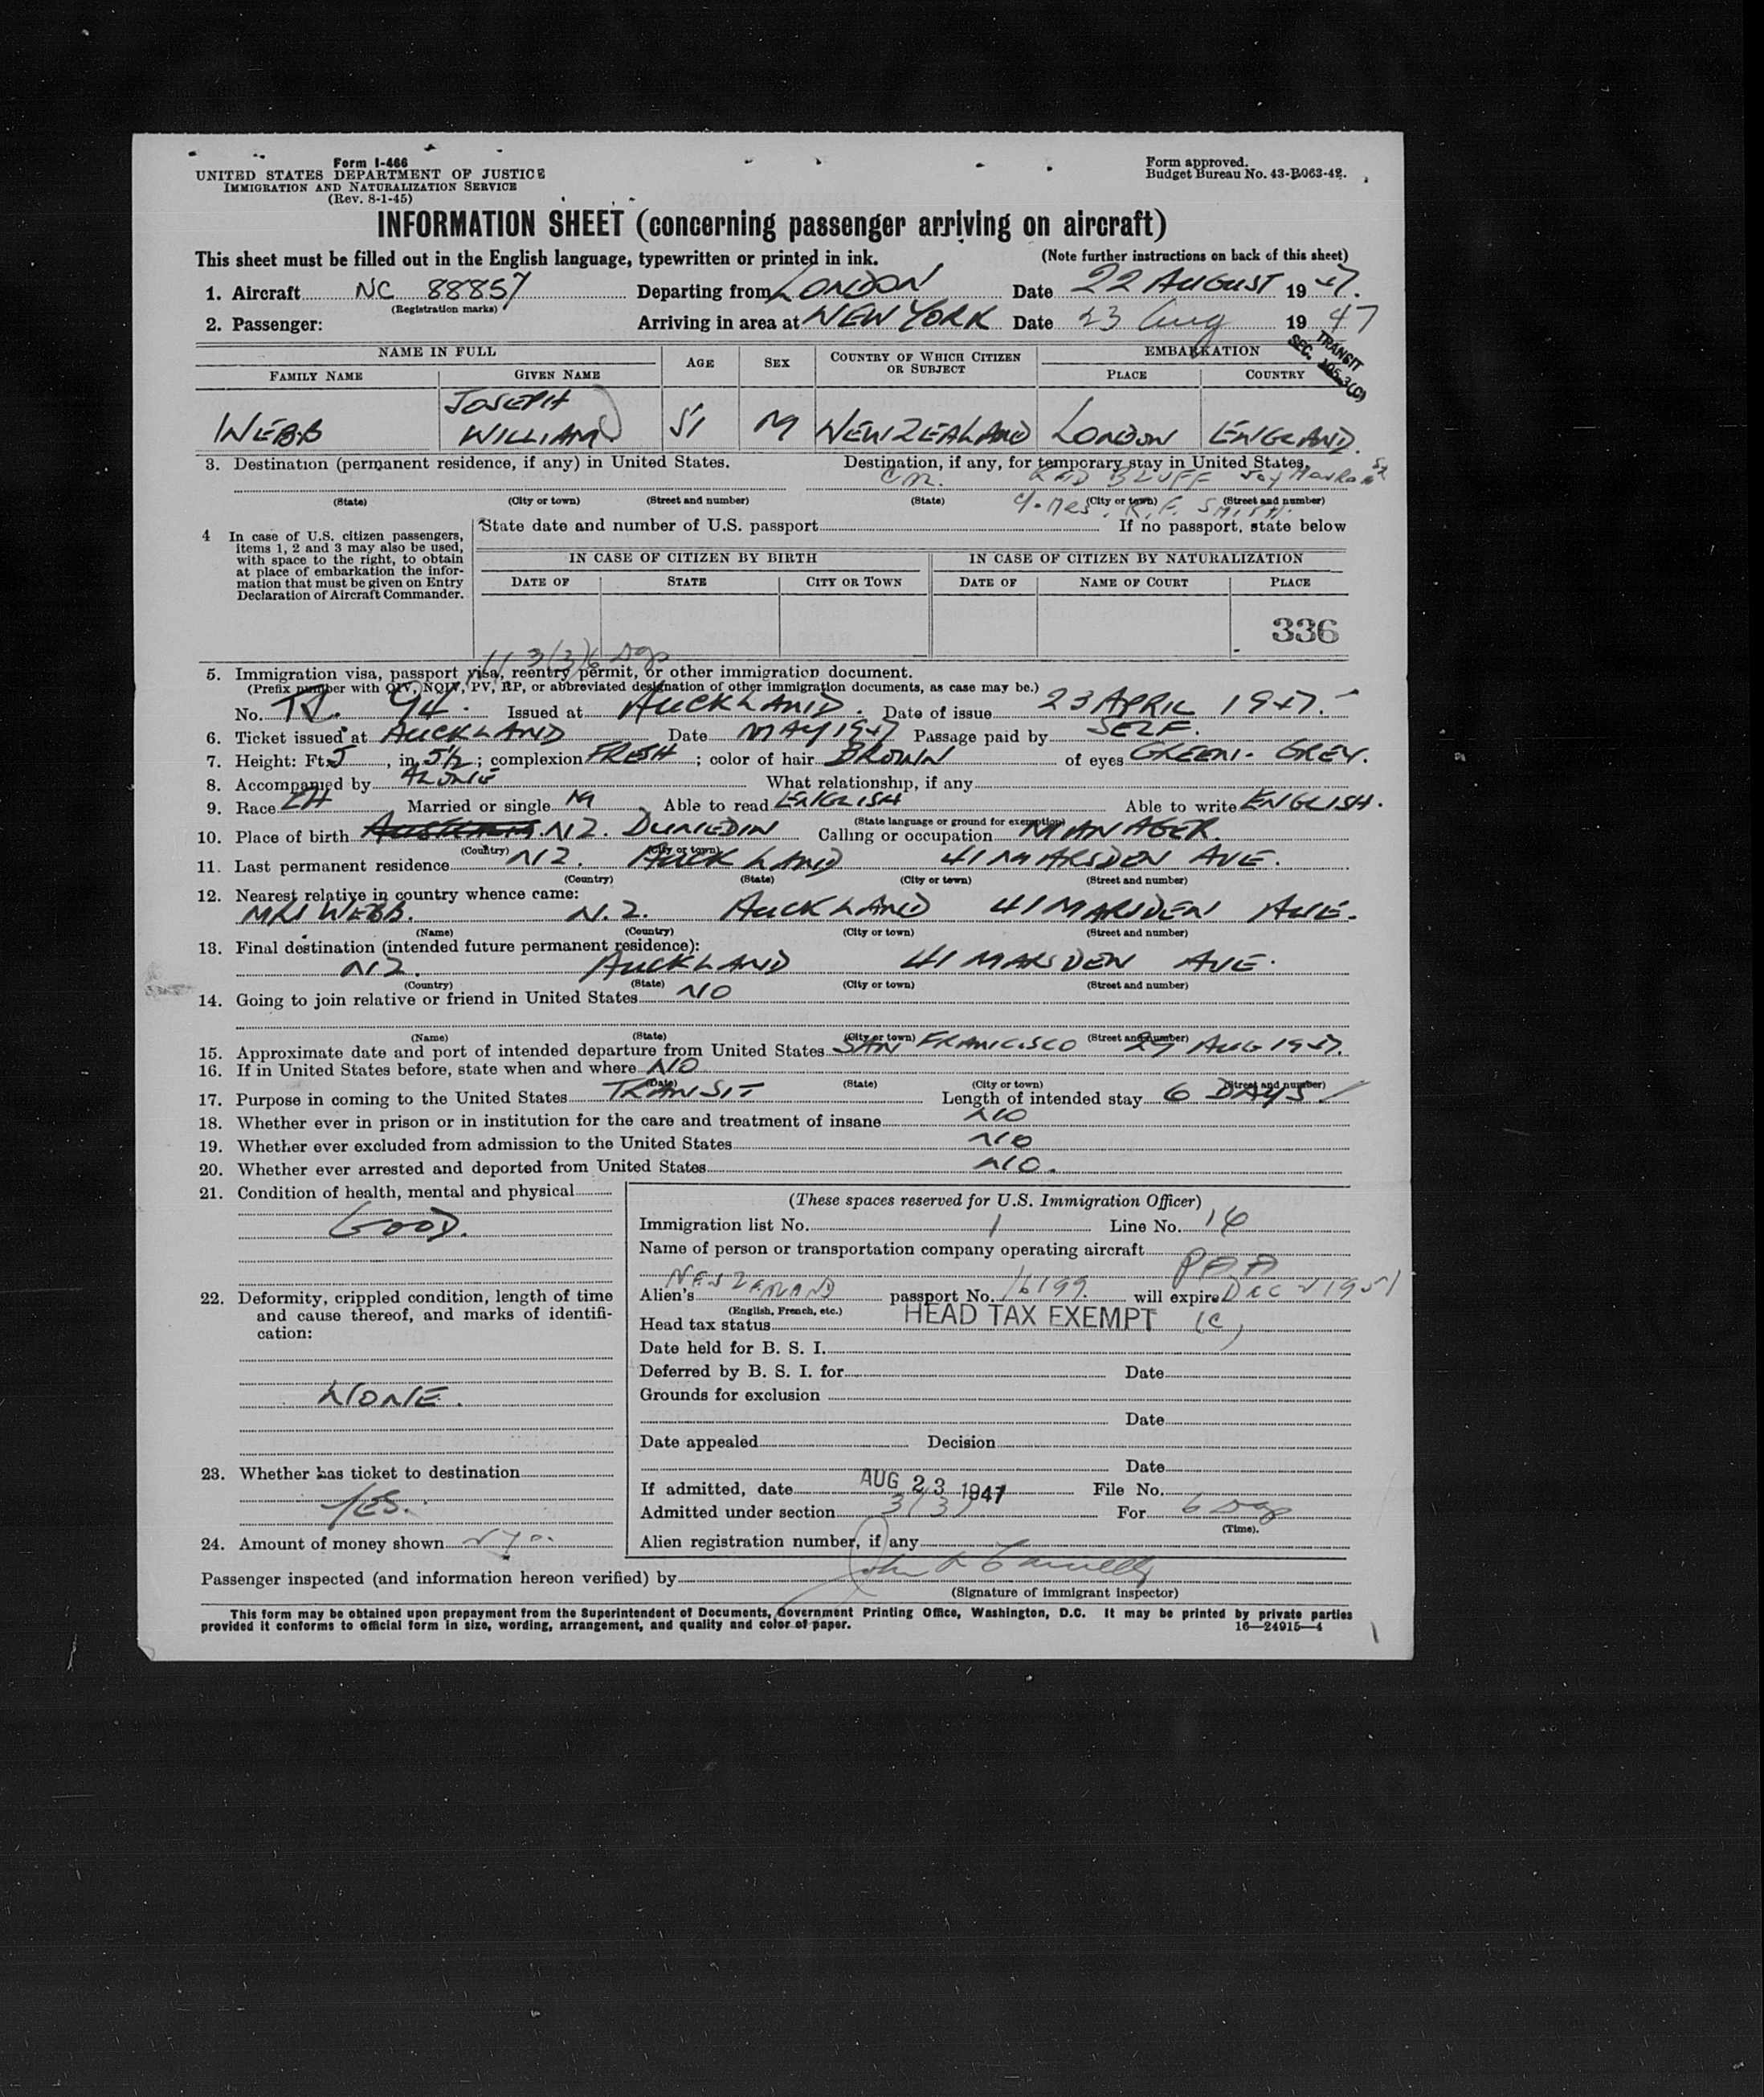 Form I-466
UNITED STATES DEPARTMENT OF JUSTICE
IMMIGRATION AND NATURALIZATION SERVICE
(Rev. 8-1-45)
Form approved.
Budget Bureau No. 43-R063-42.
INFORMATION SHEET (concerning passenger arriving on aircraft)
This sheet must be filled out in the English language, typewritten or printed in ink. (Note further instructions on back of this sheet)
1. Aircraft NC 88857 Departing from LONDON Date 22 AUGUST 1947.
(Registration marks)
2. Passenger: Arriving in area at NEW YORK Date 23 Aug 1947
TRANSIT
SEC.
NAME IN FULL AGE SEX COUNTRY OF WHICH CITIZEN OR SUBJECT EMBARKATION
FAMILY NAME GIVEN NAME PLACE COUNTRY
WEBB JOSEPH WILLIAM 51 M NEW ZEALAND LONDON ENGLAND.
3. Destination (permanent residence, if any) in United States. Destination, if any, for temporary stay in United States.
RED BLUFF
(State) (City or town) (Street and number) (State) (City or town) (Street and number)
R. F. SMITH.
4 In case of U.S. citizen passengers, items 1, 2 and 3 may also be used, with space to the right, to obtain at place of embarkation the information that must be given on Entry Declaration of Aircraft Commander.
State date and number of U.S. passport If no passport, state below
IN CASE OF CITIZEN BY BIRTH IN CASE OF CITIZEN BY NATURALIZATION
DATE OF STATE CITY OR TOWN DATE OF NAME OF COURT PLACE
336
5. Immigration visa, passport visa, reentry permit, or other immigration document.
(Prefix number with QIV, NQIV, PV, RP, or abbreviated designation of other immigration documents, as case may be.)
No. TR. 94. Issued at AUCKLAND. Date of issue 23 APRIL 1947.
6. Ticket issued at AUCKLAND Date MAY 1947 Passage paid by SELF.
7. Height: Ft. 5, in. 5½; complexion FRESH; color of hair BROWN of eyes GREEN-GREY.
8. Accompanied by ALONE What relationship, if any
9. Race Married or single M Able to read ENGLISH Able to write ENGLISH.
(State language or ground for exemption)
10. Place of birth N.Z. DUNEDIN Calling or occupation MANAGER.
(Country) (City or town)
11. Last permanent residence NZ. AUCKLAND 41 MARSDEN AVE.
(Country) (State) (City or town) (Street and number)
12. Nearest relative in country whence came:
MRS WEBB. N.Z. AUCKLAND 41 MARSDEN AVE.
(Name) (Country) (City or town) (Street and number)
13. Final destination (intended future permanent residence):
NZ. AUCKLAND 41 MARSDEN AVE.
(Country) (State) (City or town) (Street and number)
14. Going to join relative or friend in United States NO
(Name) (State) (City or town) (Street and number)
15. Approximate date and port of intended departure from United States SAN FRANCISCO 29 AUG 1947.
16. If in United States before, state when and where NO
(Date) (State) (City or town) (Street and number)
17. Purpose in coming to the United States TRANSIT Length of intended stay 6 DAYS
18. Whether ever in prison or in institution for the care and treatment of insane NO
19. Whether ever excluded from admission to the United States NO
20. Whether ever arrested and deported from United States NO.
21. Condition of health, mental and physical
GOOD.
22. Deformity, crippled condition, length of time and cause thereof, and marks of identification:
NONE.
23. Whether has ticket to destination
YES.
24. Amount of money shown
(These spaces reserved for U.S. Immigration Officer)
Immigration list No. 1 Line No. 16
Name of person or transportation company operating aircraft
PAA
Alien's passport No. 16199 will expire DEC 2 1951
(English, French, etc.)
Head tax status HEAD TAX EXEMPT (c)
Date held for B. S. I.
Deferred by B. S. I. for Date
Grounds for exclusion
Date
Date appealed Decision
Date
If admitted, date AUG 23 1947 File No.
Admitted under section 3(3) For 6 Days
(Time).
Alien registration number, if any
Passenger inspected (and information hereon verified) by
(Signature of immigrant inspector)
This form may be obtained upon prepayment from the Superintendent of Documents, Government Printing Office, Washington, D.C. It may be printed by private parties
provided it conforms to official form in size, wording, arrangement, and quality and color of paper. 16—24915—4